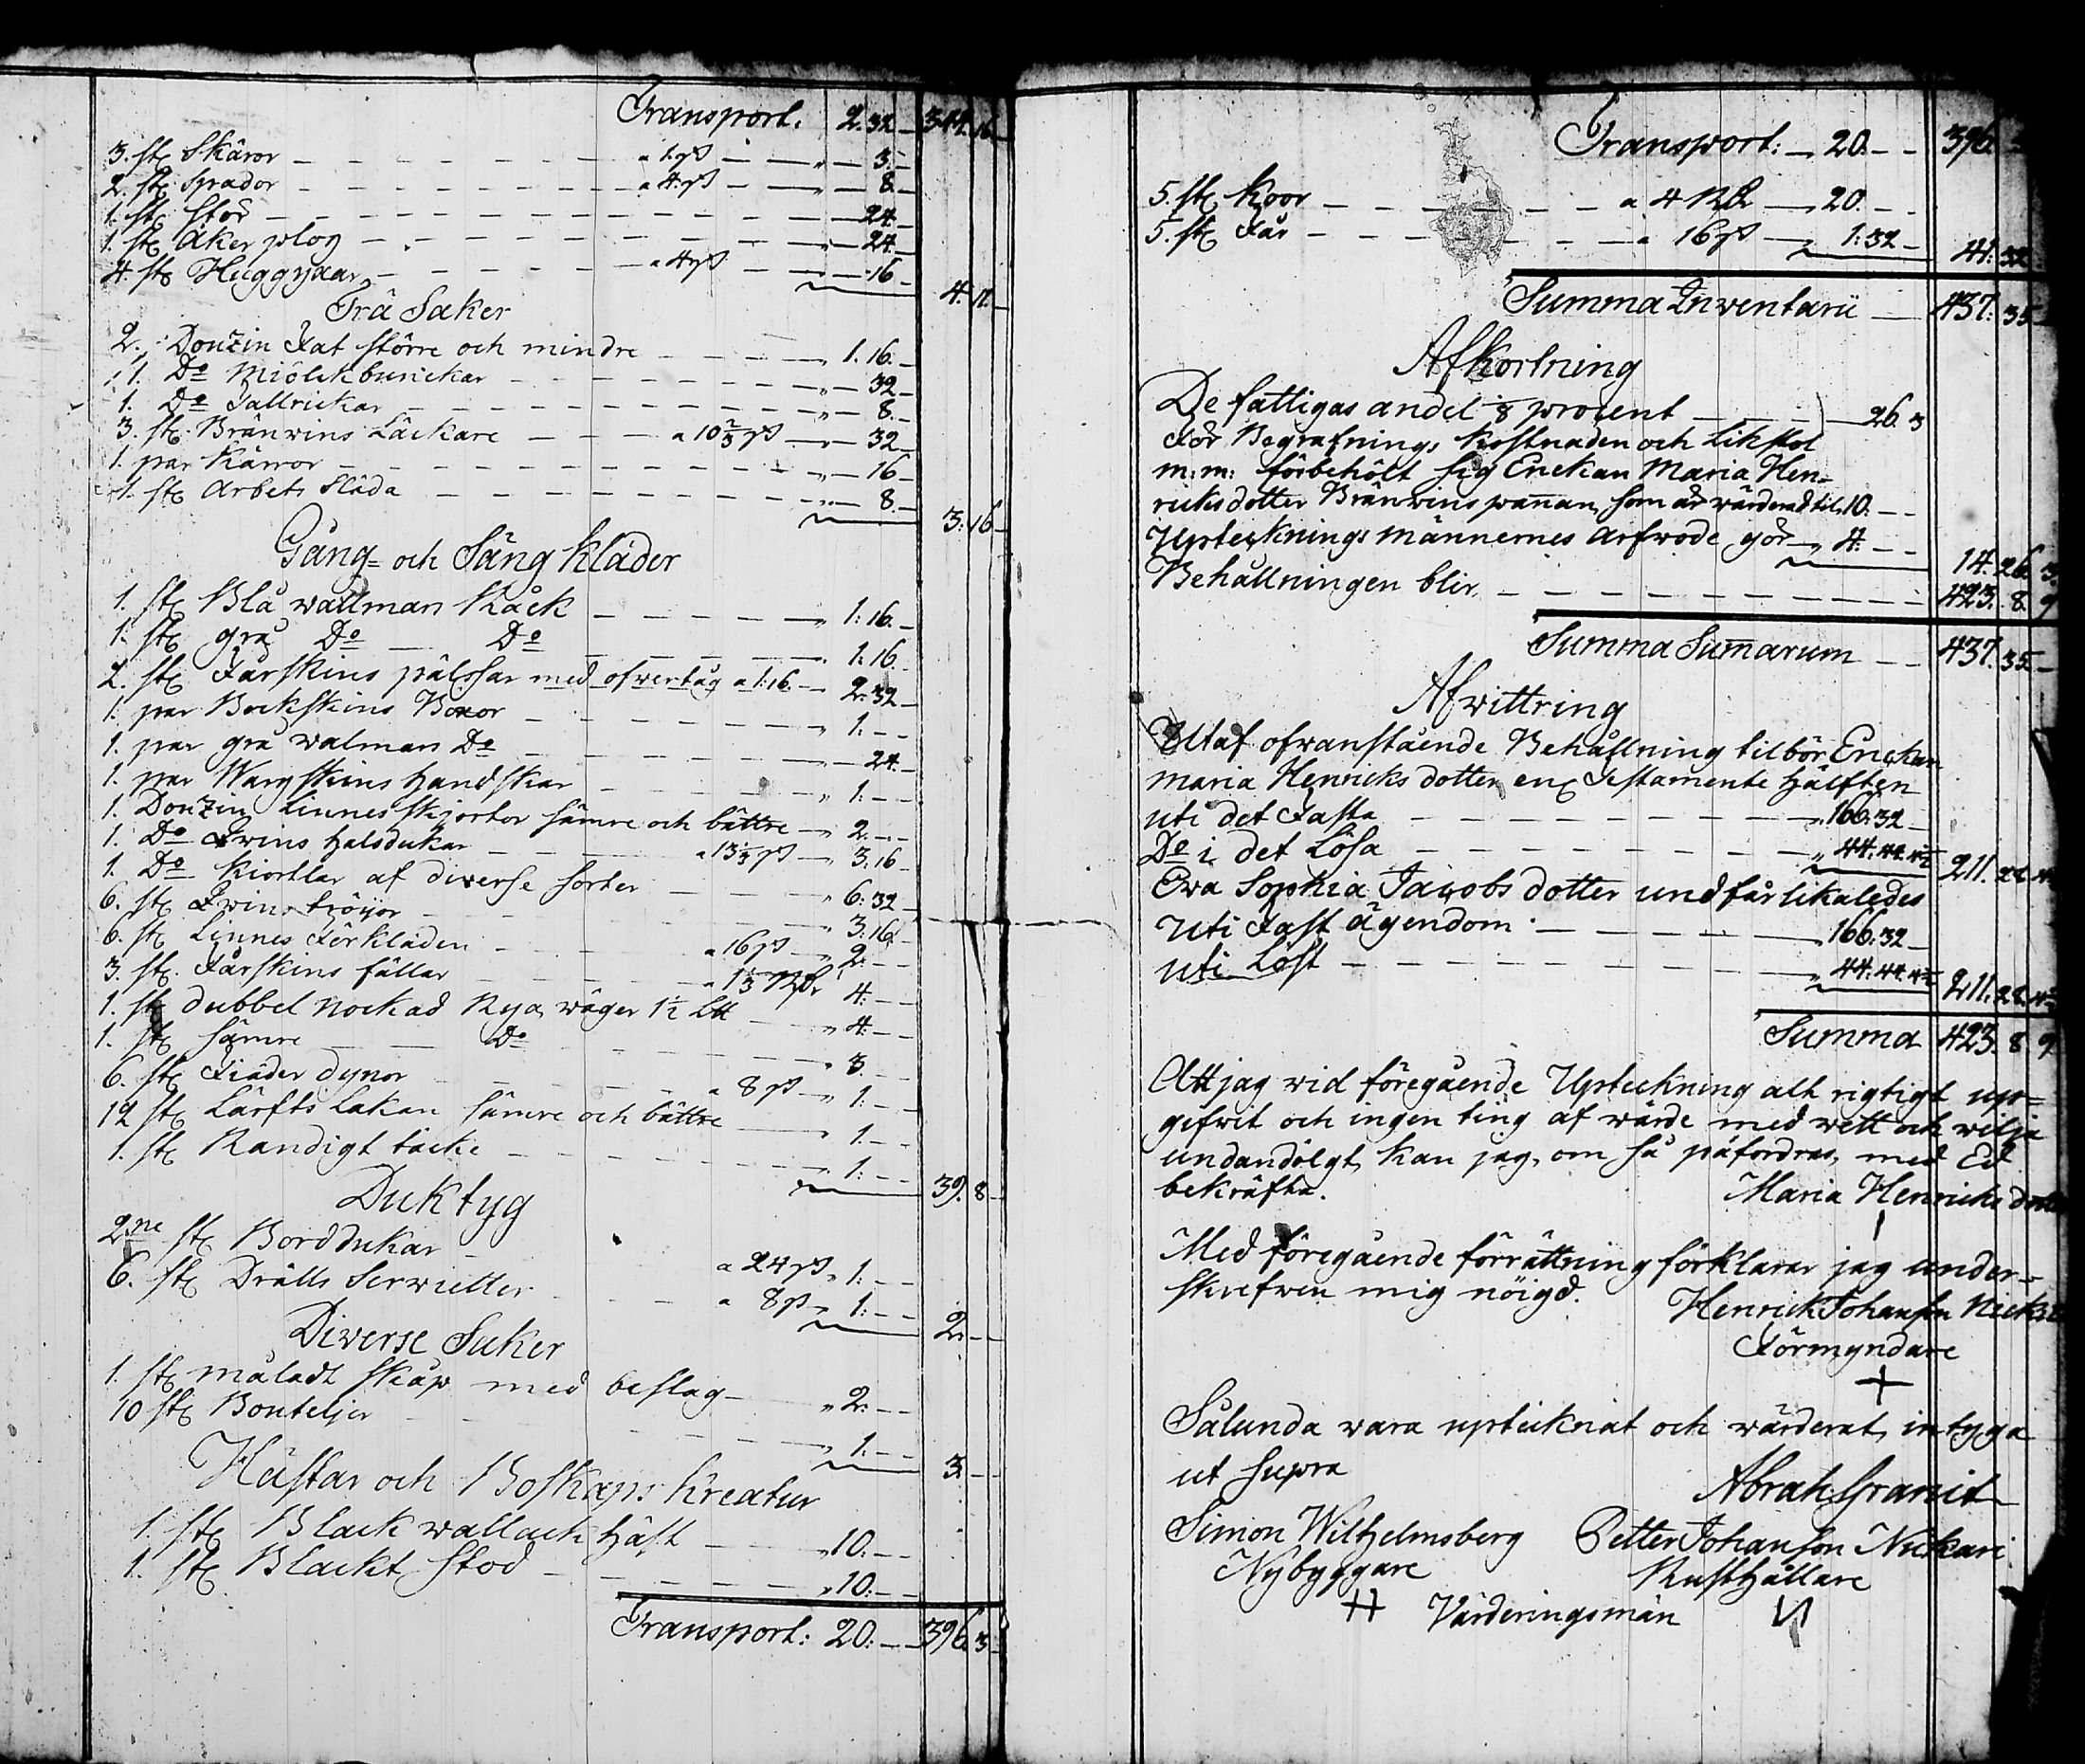 Transport. 2.32.– 344.16.–
3. st: Skäror – – – a 1 ß – „ – 3.–
2. st: Spador – – – a 4 ß – „ – 8.–
1. st: stör – – – 24.–
1. st: Åker plog – – – „ – 24.–
4. st: Huggyxar – – – a 4 ß – – 16.– 4. 11.–
Trä Saker
2. Douzin Fat större och mindre – – – „ 1. 16.–
1. Do Miölckbunckar – – – „ – 32.–
1. Do Tallrickar – – – „ – 8.–
3. st: Bränwins Läckare – – – a 10 2/3 ß – „ – 32.–
1. par Kärror – – – „ – 16.–
1. st: Arbets Släda – – – „ – 8.– 3: 16.–
Gång= och Säng Kläder
1. st: Blå wallman Råck – – – „ 1: 16.–
1. st: grå Do Do – – – „ 1: 16.–
2. st: Fårskins pälssar med ofwertåg a 1: 16.– 2: 32.–
1. par Bockskins Boxor – – – „ 1: – –
1. par grå walman Do – – – „ – 24.–
1. par Wargskins handskar – – – „ 1: – –
1. Douzin Linnesskjortor sämre och bättre – „ 2: – –
1. Do Twins halsdukar – – – a 13 1/3 ß – „ 3: 16.–
1. Do Kiortlar af diverse sorter – – – „ 6: 32.–
6. st: Twins tröijor – – – „ 3: 16.–
6. st: Linnes Förkläden – – – a 16 ß „ 2: – –
3. st: Fårskins fällar – – – a 1 1/3 Rdr „ 4: – –
1. st: dubbel nockad Rya, wäger 1 1/2 L℔ – – „ 4: – –
1. st: sämre – – Do – – – „ 3. – –
6. st: Fiäder dynor – – – a 8 ß – „ 1: – –
12 st: Lärfts Lakan sämre och bättre – – – „ 1: – –
1. st: Randigt täcke – – – „ 1: – – 39. 8.–
Duktyg
2ne st: Borddukar – – – a 24 ß „ 1: – –
6. st: Drälls Serwietter – – – a 8 ß „ 1: – – 2. – –
Diverse Saker
1. st: måladt skåp med beslag – – „ 2: – –
10 st: Bouteljer – – – „ 1: – – 3. – –
Hästar och Boskaps Kreatur
1. st: Black wallack häst – – – „ 10: – –
1. st: Blackt Stod – – – „ 10: – –
Transport: 20: – – 396. 3.–
Transport: – 20: – – 396.
5. st: Koor – – – a 4 Rdr – „ 20. – –
5. st: Får – – – a 16 ß – „ 1: 32 – 41: 32.
Summa Inventarii – 437: 35.–
Afkortning
De fattigas andel 1/8 procent – – – 26. 3
För Begrafnings Kostnaden och Likstol
m: m: förbehölt sig Enckan Maria Hen-
ricksdotter Bränwins pannan, som är wärderad til 10. – –
Upteckningsmännernes Arfwode gör – „ 4: – – 14. 26. 3.
Behållningen blir – – – 423. 8. 9
Summa Sumarum – – 437. 35.–
Afwittring
Utaf ofwanstående Behållning tilbör Enckan
Maria Henricksdotter en: Testamente Hälften
uti det Fasta – – – „ 166: 32 –
Do i det Lösa – – – „ 44: 44. 4 1/2 211. 28. 4 1/2
Ewa Sophia Jacobsdotter undfår likaledes
uti Fast ägendom – – – 166: 32 –
uti Löst – – – „ 44: 44. 4 1/2 211. 28. 4 1/2
Summa 423. 8. 9
Att jag wid föregående Upteckning alt rigtigt up=
gifwit och ingen ting af wärde med wett och wilja
undandölgt, kan jag, om så påfordras, med Ed
bekräfta.
Maria Henricks dotter
Med föregående förrättning förklarar jag under=
skrefwen mig nöigd.
Henrick Johansson
Förmyndare
Sålunda wara uptecknat och wärderat, intyga
ut supra
Abrah Granit
Simon Wilhelmsberg Petter Johansson Nickari
Nybyggare Rusthållare
Värderingsmän